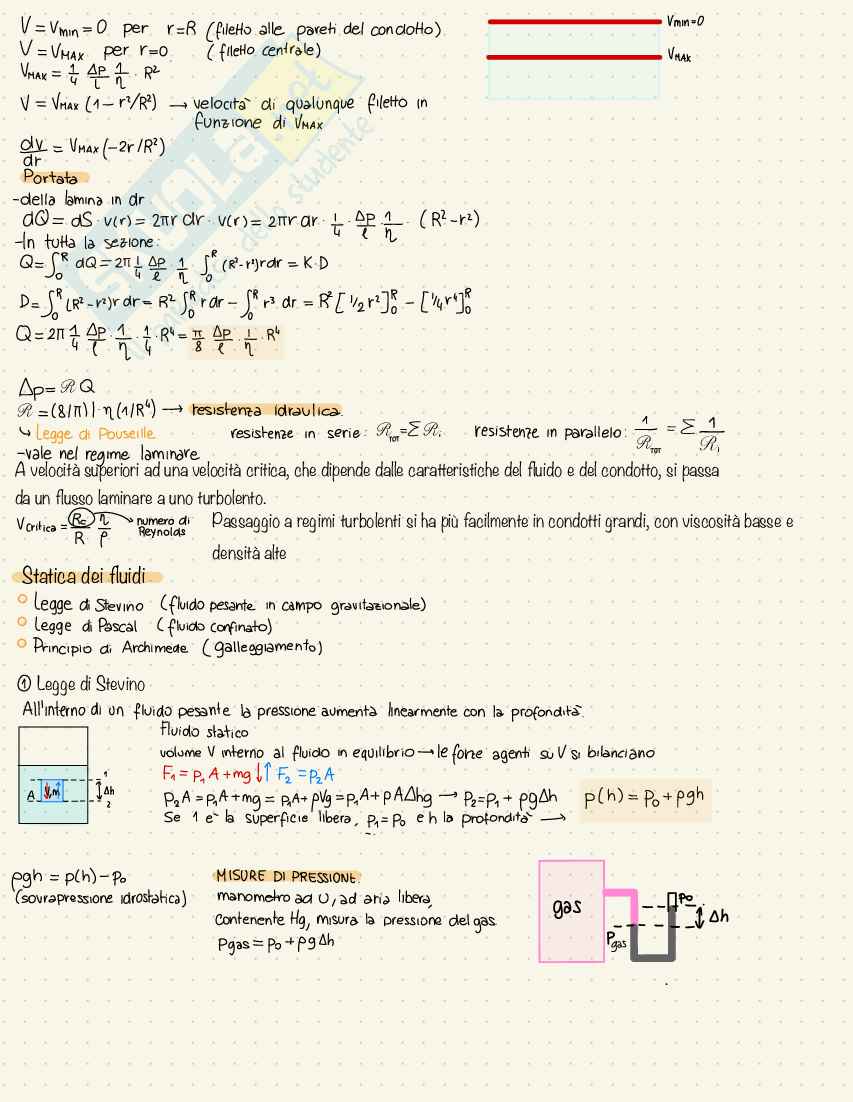 V = Vmin = 0 per r=R (filetto alle pareti del condotto)
V = VMAX per r=0 (filetto centrale)
VMAX = 1/4 Δp/l 1/η · R²
V = VMAX (1 - r²/R²) → velocità di qualunque filetto in
funzione di VMAX
dv/dr = VMAX (-2r/R²)
Vmin=0
VMAX
Portata
-della lamina in dr
dQ = dS · v(r) = 2πr dr · v(r) = 2πr dr · 1/4 · Δp/l · 1/η · (R²-r²)
-In tutta la sezione:
Q = ∫₀ᴿ dQ = 2π 1/4 Δp/l 1/η ∫₀ᴿ (R²-r²) r dr = K·D
D = ∫₀ᴿ (R²-r²) r dr = R² ∫₀ᴿ r dr - ∫₀ᴿ r³ dr = R² [1/2 r²]₀ᴿ - [1/4 r⁴]₀ᴿ
Q = 2π 1/4 Δp/l · 1/η · 1/4 · R⁴ = π/8 Δp/l · 1/η · R⁴
Δp = ℛ Q
ℛ = (8/π) l · η (1/R⁴) → resistenza idraulica
↳ Legge di Pouseille
resistenze in serie: ℛTOT = Σ ℛi resistenze in parallelo: 1/ℛTOT = Σ 1/ℛi
-vale nel regime laminare
A velocità superiori ad una velocità critica, che dipende dalle caratteristiche del fluido e del condotto, si passa
da un flusso laminare a uno turbolento.
Vcritica = Rc/R η/ρ → numero di Reynolds
Passaggio a regimi turbolenti si ha più facilmente in condotti grandi, con viscosità basse e
densità alte
Statica dei fluidi
Legge di Stevino (fluido pesante in campo gravitazionale)
Legge di Pascal (fluido confinato)
Principio di Archimede (galleggiamento)
① Legge di Stevino
All'interno di un fluido pesante la pressione aumenta linearmente con la profondità.
Fluido statico
volume V interno al fluido in equilibrio → le forze agenti su V si bilanciano
F₁ = p₁A + mg ↓ ↑ F₂ = p₂A
p₂A = p₁A + mg = p₁A + ρVg = p₁A + ρAΔhg → p₂ = p₁ + ρgΔh
p(h) = p₀ + ρgh
Se 1 è la superficie libera, p₁ = p₀ e h la profondità →
A
m
1
2
Δh
ρgh = p(h) - p₀
(sovrapressione idrostatica)
MISURE DI PRESSIONE:
manometro ad U, ad aria libera,
contenente Hg, misura la pressione del gas.
Pgas = p₀ + ρgΔh
gas
p₀
Pgas
Δh
SKUOLA.net
il mondo dello studente